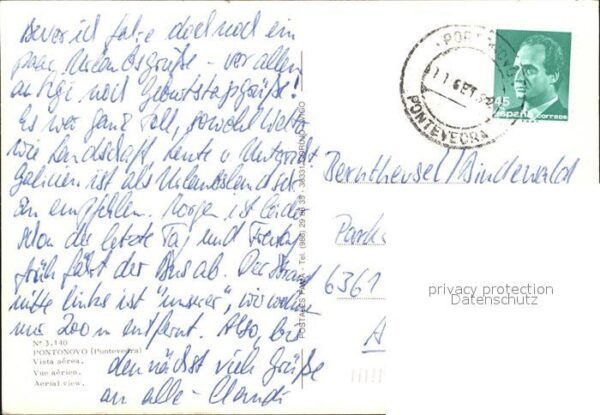 Bevor ich fahre doch noch ein
paar Urlaubsgrüße - vor allem
an Egi noch Geburtstagsgrüße!
Es war ganz toll, sowohl Wetter
wie Landschaft, Leute u Unterricht
Galicien ist als Urlaubsland sehr
zu empfehlen. Morgen ist leider
schon der letzte Tag und Freitag
früh fährt der Bus ab. Der Strand
mitte links ist "unserer", wir wohnen
nur 200 m entfernt. Also, bis
demnächst viele Grüße
an alle - Claudi
Nº 3.140
PONTONOVO (Pontevedra)
Vista aérea.
Vue aérien.
Aerial view.
POSTALES FAMA - Tel. (986)
PONTEVEDRA
45
España correos
Berntheusel / Bindewald
6361
privacy protection
Datenschutz